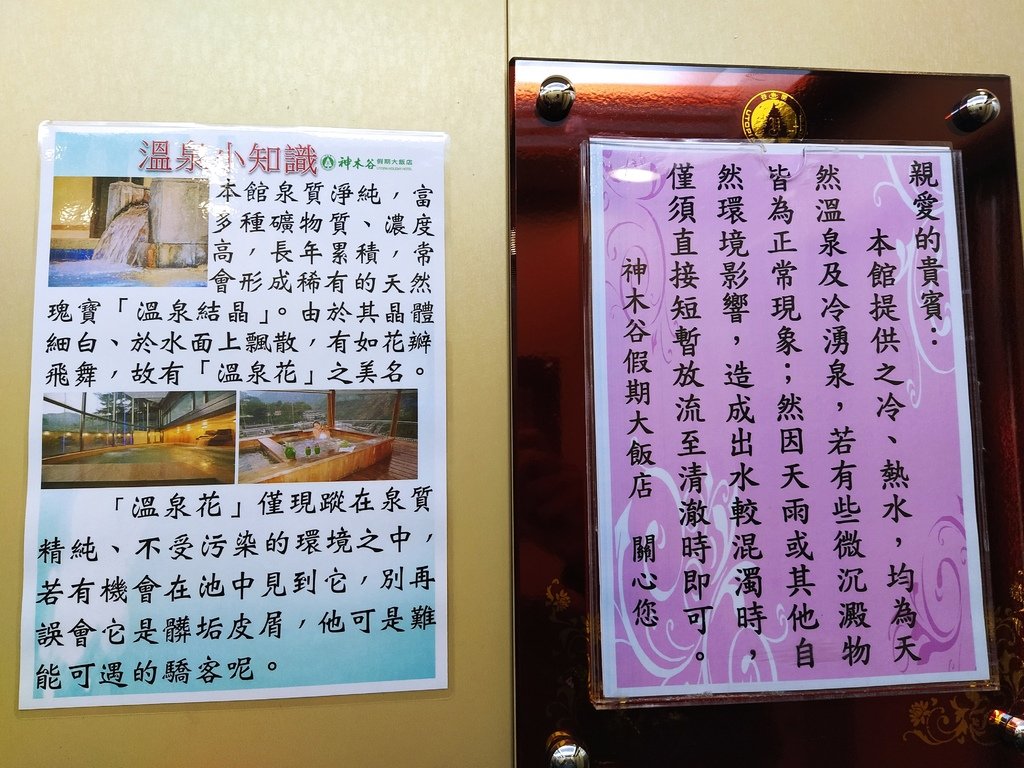 溫泉小知識 神木谷 假期大飯店
UTOPIA HOLIDAY HOTEL
本館泉質淨純，富
多種礦物質、濃度
高，長年累積，常
會形成稀有的天然
瑰寶「溫泉結晶」。由於其晶體
細白、於水面上飄散，有如花瓣
飛舞，故有「溫泉花」之美名。
「溫泉花」僅現蹤在泉質
精純、不受污染的環境之中，
若有機會在池中見到它，別再
誤會它是髒垢皮屑，他可是難
能可遇的驕客呢。
親愛的貴賓：
本館提供之冷、熱水，均為天
然溫泉及冷湧泉，若有些微沉澱物
皆為正常現象；然因天雨或其他自
然環境影響，造成出水較混濁時，
僅須直接短暫放流至清澈時即可。
神木谷假期大飯店 關心您